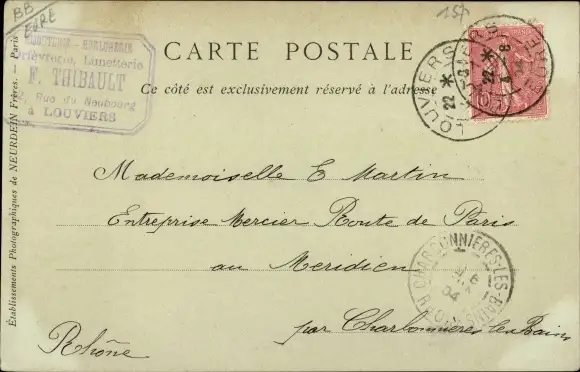 BB
EURE
15F
BIJOUTERIE - HORLOGERIE
Orfèvrerie, Lunetterie
F. THIBAULT
Rue du Neubourg
à LOUVIERS
CARTE POSTALE
Ce côté est exclusivement réservé à l'adresse
LOUVIERS
22
EURE
Établissements Photographiques de NEURDEIN Frères. — Paris
Mademoiselle E Martin
Entreprise Mercier Route de Paris
au Meridien
par Charbonnieres les Bains
Rhône
CHARBONNIERES-LES-BAINS
04